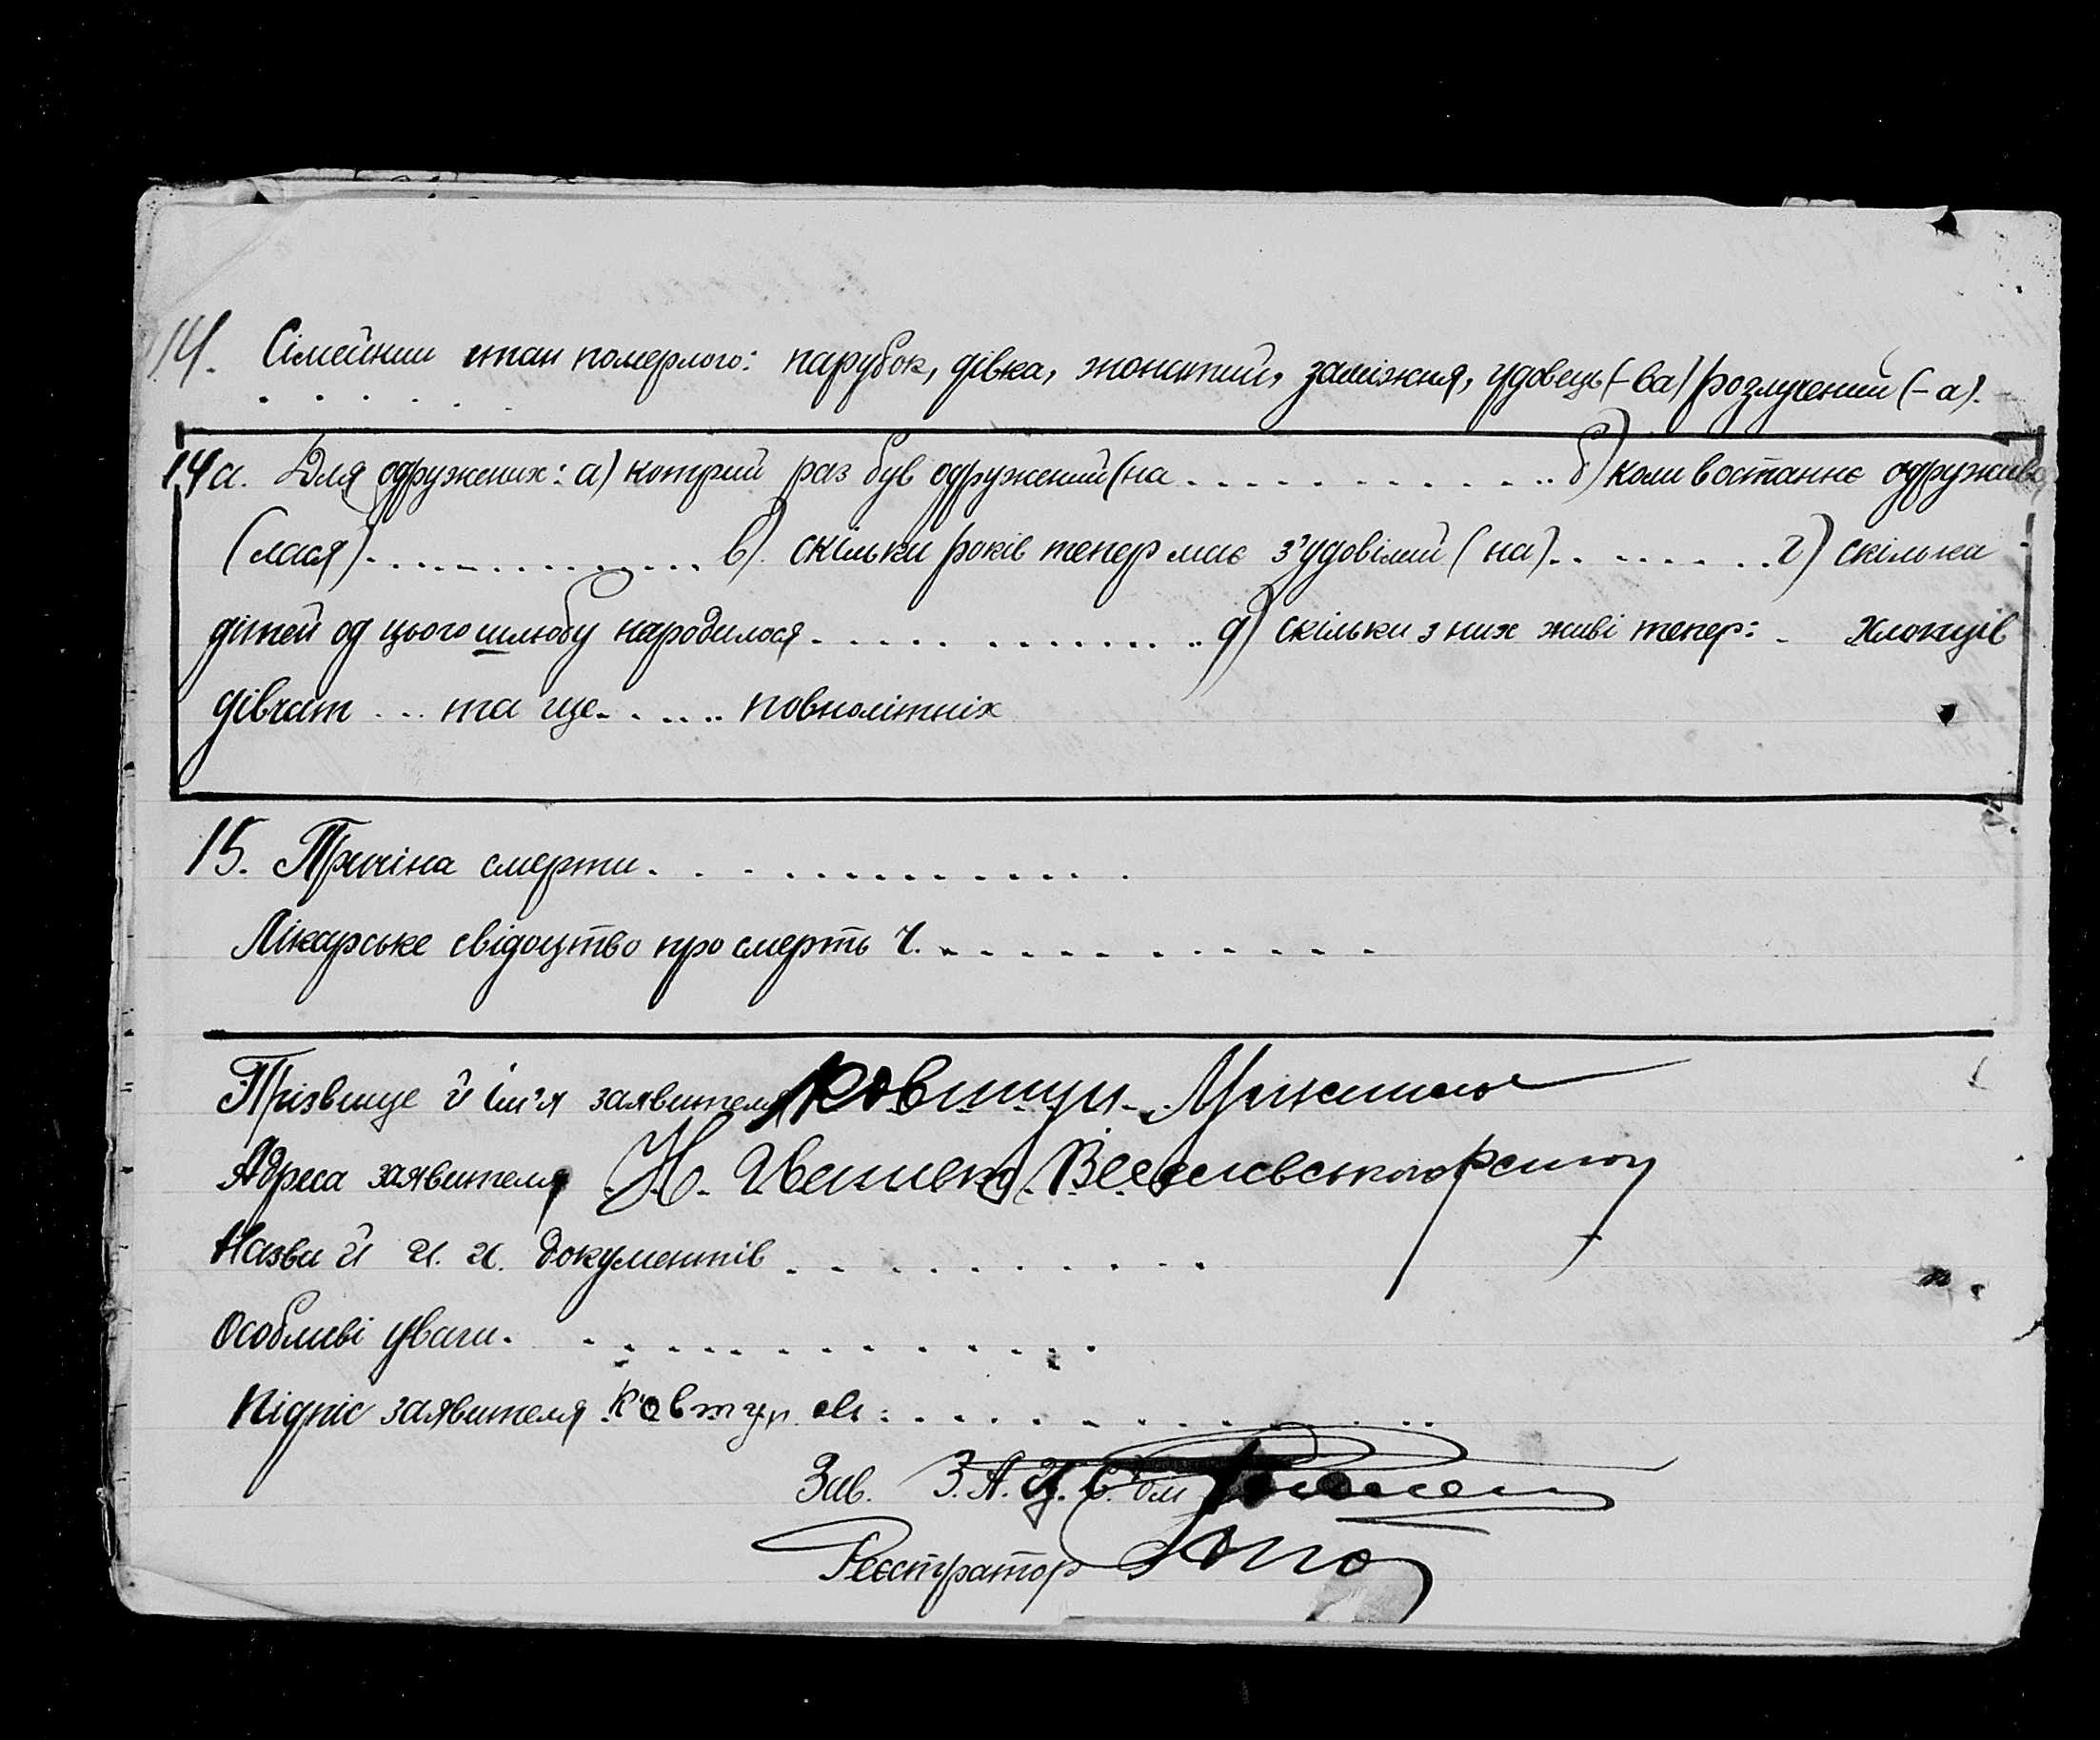 14. Сімейний стан померлого: парубок, дівка, жонатий, заміжня, удовець (-ва) розлучений (-а).
14а. Для одружених: а) котрий раз був одружений (на . . . . . . . . . . . . . . б) коли востаннє одруживс
(лася) . . . . . . . . . . . . . . в) скільки років тепер має з'удовілий (на) . . . . . . . . г) скілька
дітей од цього шлюбу народилося . . . . . . . . . . . . . д) скільки з них живі тепер: . хлопців
дівчат . . . та ще . . . . . . повнолітніх
15. Причіна смерти . . . . . . . . . . . . . . .
Лікарське свідоцтво про смерть ч. . . . . . . . . . . . .
Прізвище й ім'я заявителя Ковтун Максим
Адреса заявителя Н. Іванівка Веселівського району
Назва й ч. ч. документів . . . . . . . . . . .
Особливі уваги. . . . . . . . . . . . . .
Підпіс заявителя Ковтун М . . . . . . . . . . . .
Зав. З.А.Ц.С.'ом
Реєстратор